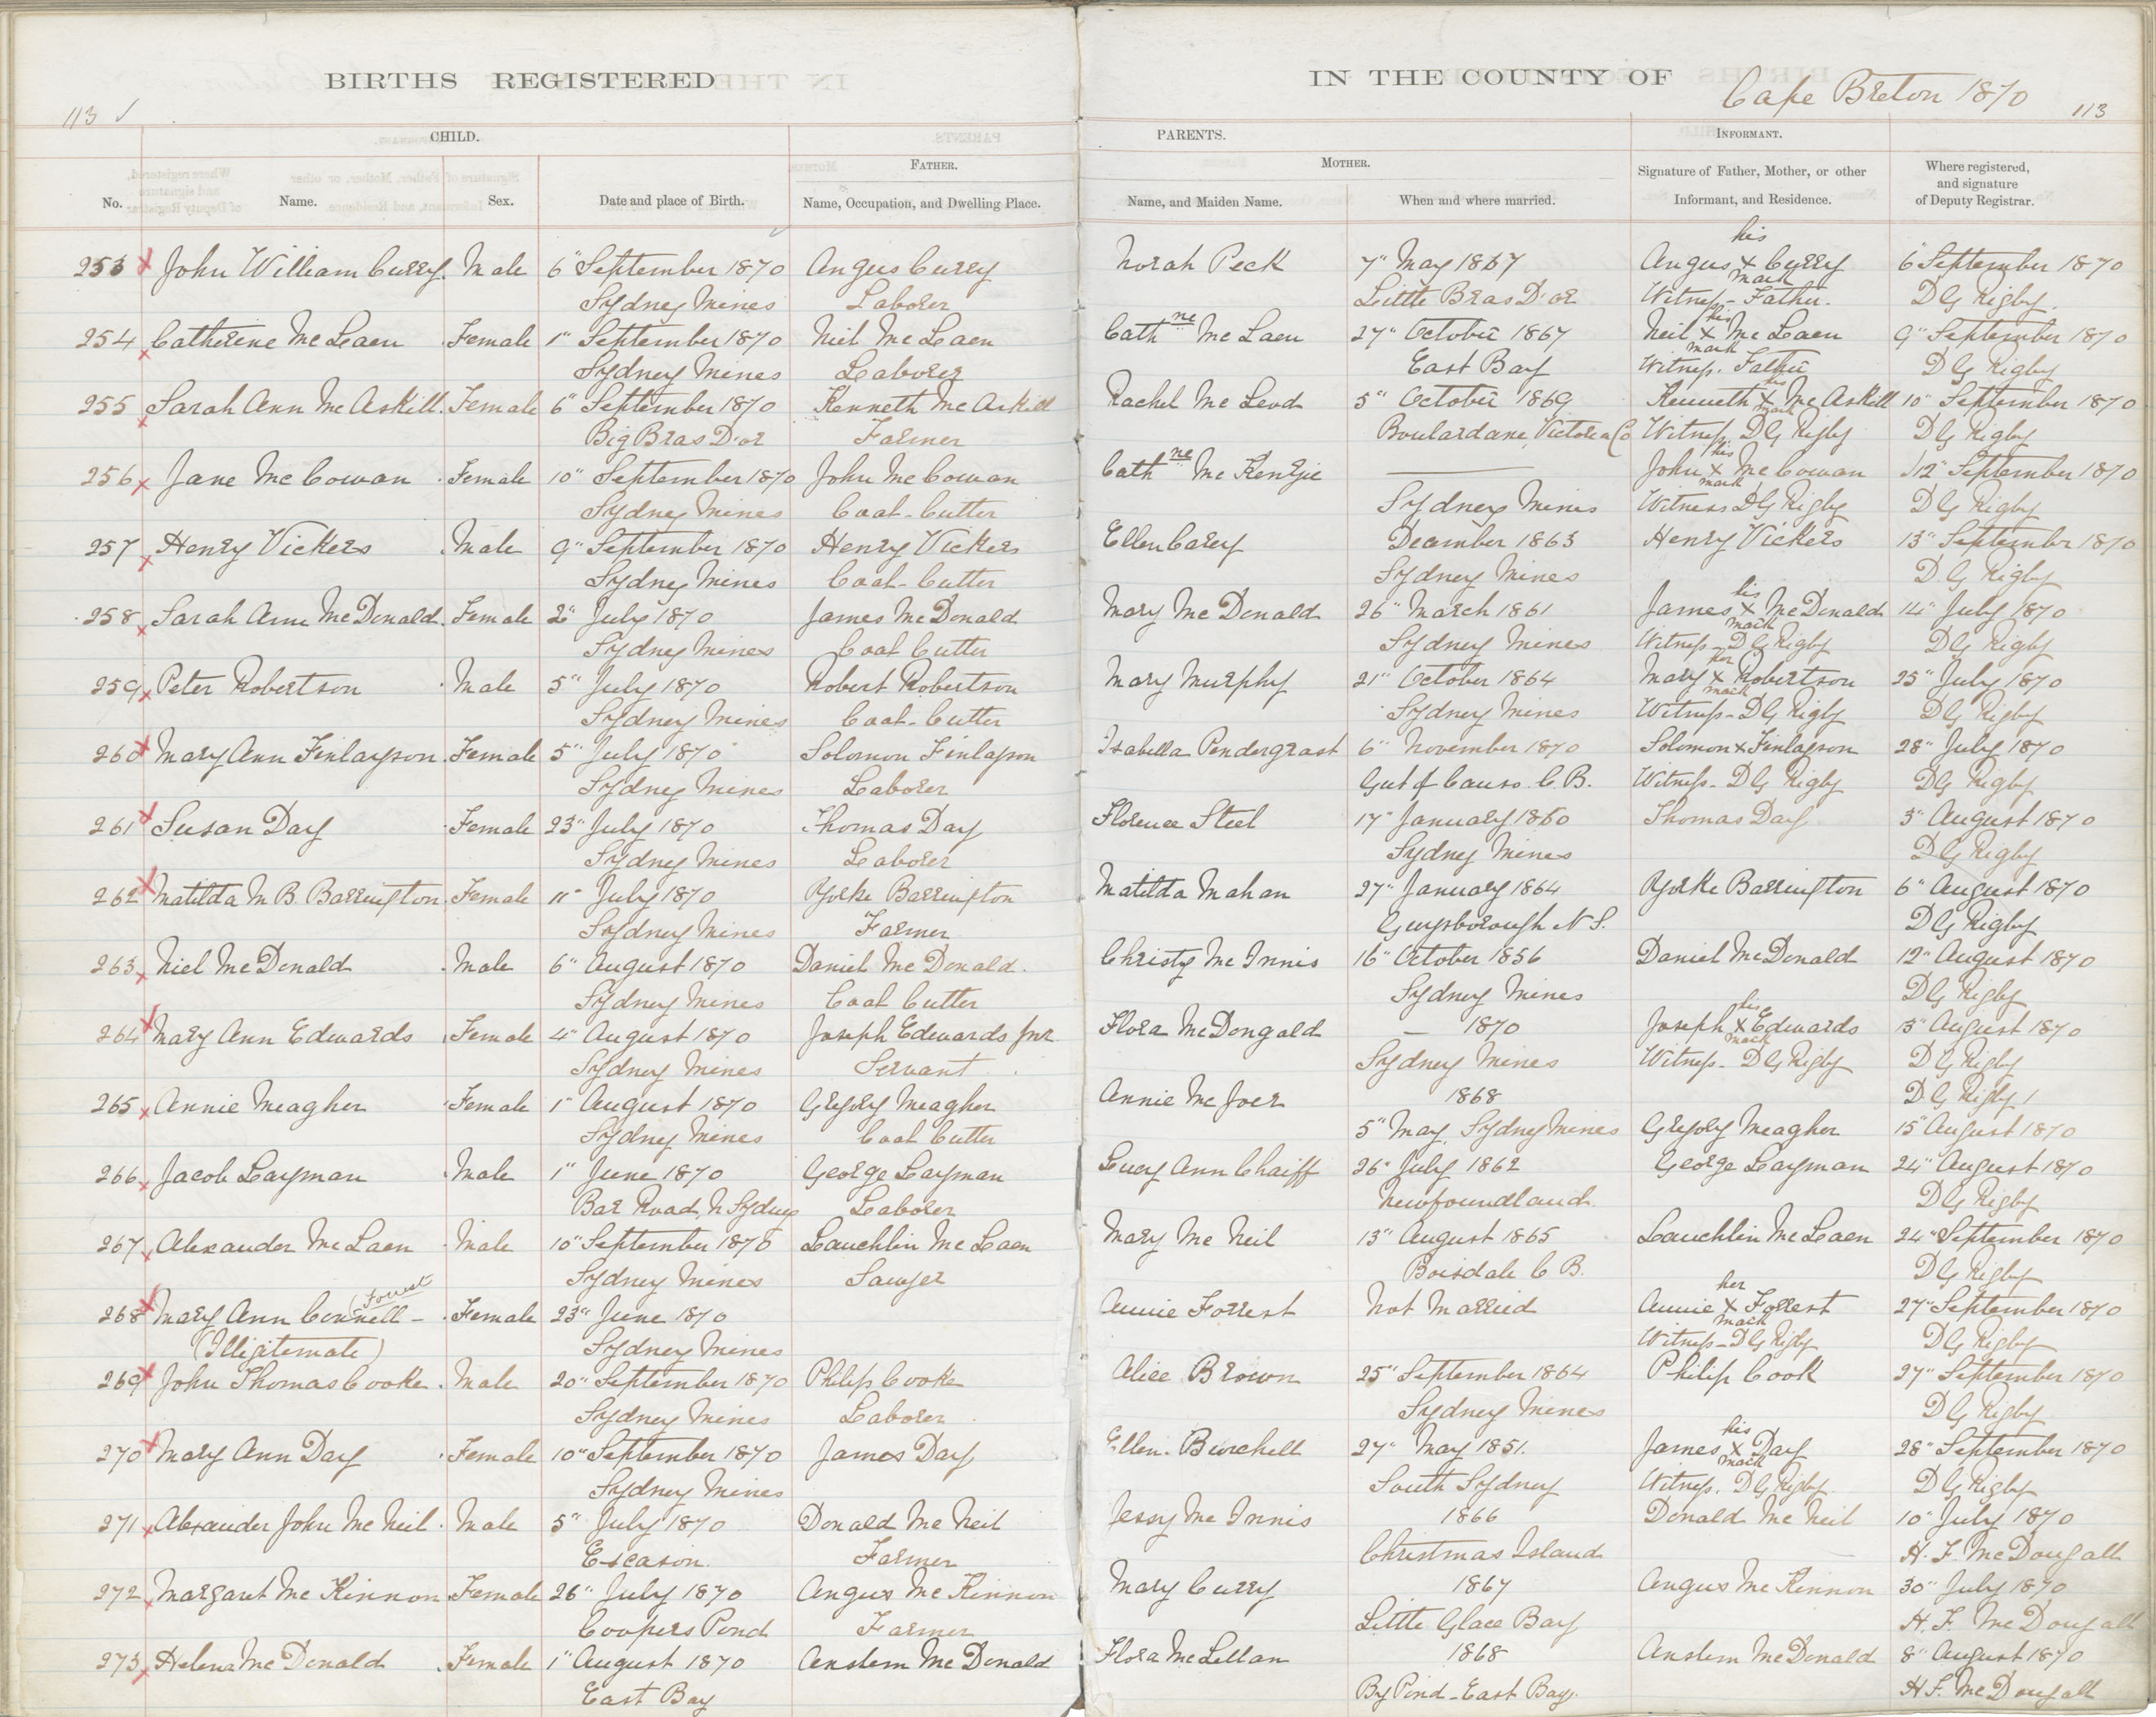 BIRTHS REGISTERED IN THE COUNTY OF Cape Breton 1870
113 113
CHILD. PARENTS. INFORMANT.
FATHER. MOTHER. Signature of Father, Mother, or other Where registered,
and signature
No. Name. Sex. Date and place of Birth. Name, Occupation, and Dwelling Place. Name, and Maiden Name. When and where married. Informant, and Residence. of Deputy Registrar.
his
253 John William Curry. Male 6" September 1870 Angus Curry Norah Peck 7" May 1867 Angus x Curry 6" September 1870
mark
Sydney Mines Laborer Little Bras D'or Witness - Father. D G Rigby.
his
254 Catherine McLaen Female 1" September 1870 Niel McLaen Cathne McLaen 27" October 1867 Neil x McLaen 9" September 1870
mark
Sydney Mines Laborer East Bay Witness. Father D G Rigby
his
255 Sarah Ann McAskill. Female 6" September 1870 Kenneth McAskill Rachel McLeod 5" October 1869 Kenneth x McAskill 10" September 1870
mark
Big Bras D'or Farmer Boulardarie Victoria Co Witness. D G Rigby D G Rigby
his
256 Jane McCowan Female 10" September 1870 John McCowan Cathne McKenzie John x McCowan 12" September 1870
mark
Sydney Mines Coal-Cutter Sydney Mines Witness D G Rigby D G Rigby
257 Henry Vickers Male 9" September 1870 Henry Vickers Ellen Carey December 1863 Henry Vickers 13" September 1870
Sydney Mines Coal-Cutter Sydney Mines D. G Rigby
his
258 Sarah Ann McDonald. Female 2" July 1870 James McDonald Mary McDonald 26" March 1861 James x McDonald 14" July 1870
mark
Sydney Mines Coal Cutter Sydney Mines Witness - D G Rigby D G Rigby
her
259 Peter Robertson Male 5" July 1870 Robert Robertson Mary Murphy 21" October 1864 Mary x Robertson 25" July 1870
mark
Sydney Mines Coal-Cutter Sydney Mines Witness - D G Rigby D G Rigby
260 Mary Ann Finlayson. Female 5" July 1870 Solomon Finlayson Isabella Pendergrast 6" November 1870 Solomon x Finlayson 28" July 1870
Sydney Mines Laborer Gut of Canso. C. B. Witness - D G Rigby D G Rigby
261 Susan Day Female 23" July 1870 Thomas Day Florence Steel 17" January 1860 Thomas Day 5" August 1870
Sydney Mines Laborer Sydney Mines D G Rigby
262 Matilda M B. Barrington Female 11" July 1870 Yorke Barrington Matilda Mahan 27" January 1864 Yorke Barrington 6" August 1870
Sydney Mines Farmer Guysborough N S. D G Rigby
263 Niel McDonald Male 6" August 1870 Daniel McDonald. Christy McInnis 16" October 1856 Daniel McDonald 12" August 1870
Sydney Mines Coal Cutter Sydney Mines D G Rigby
his
264 Mary Ann Edwards Female 4" August 1870 Joseph Edwards Jnr Flora McDongald — 1870 Joseph x Edwards 15" August 1870
mark
Sydney Mines Servant Sydney Mines Witness - D G Rigby D G Rigby
265 Annie Meagher Female 1" August 1870 Gregory Meagher Annie McJoer 1868 D. G Rigby
Sydney Mines Coal Cutter 5" May, Sydney Mines Gregory Meagher 15" August 1870
266 Jacob Layman Male 1" June 1870 George Layman Lucy Ann Chaiff 26" July 1862 George Layman 24" August 1870
Bar Road, N Sydney Laborer Newfoundland. D G Rigby
267 Alexander McLaen Male 10" September 1870 Lauchlin McLaen Mary McNeil 13" August 1865 Lauchlin McLaen 24" September 1870
Sydney Mines Sawyer Boisdale C B. D G Rigby
(Forrest her
268 Mary Ann Connell - Female 23" June 1870 Annie Forrest Not Married Annie x Forrest 27" September 1870
mark
(Illigitemate) Sydney Mines Witness - D G Rigby D G Rigby
269 John Thomas Cooke. Male 20" September 1870 Philip Cooke Alice Brown 25" September 1864 Philip Cook 27" September 1870
Sydney Mines Laborer Sydney Mines D G Rigby
his
270 Mary Ann Day Female 10" September 1870 James Day Ellen. Burchell 27" May 1851. James x Day 28" September 1870
mark
Sydney Mines South Sydney Witness. D G Rigby. D G Rigby
271 Alexander John McNeil. Male 5" July 1870 Donald McNeil Jessy McInnis 1866 Donald McNeil 10" July 1870
Escasoin. Farmer Christmas Island H. F. McDougall
272 Margaret McKinnon Female 26" July 1870 Angus McKinnon Mary Curry 1867 Angus McKinnon 30" July 1870
Coopers Pond Farmer Little Glace Bay H. F. McDougall
273 Helena McDonald Female 1" August 1870 Anslem McDonald Flora McLellan 1868 Anslem McDonald 8" August 1870
East Bay By Pond - East Bay. H F. McDougall